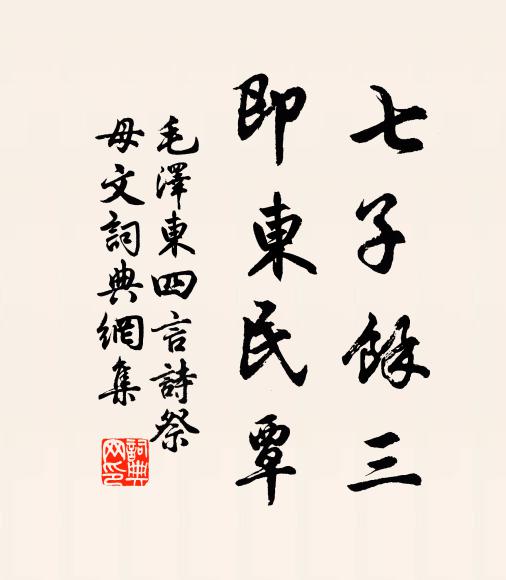 七子餘三
即東民覃
毛澤東四言詩祭
母文詞典網集
詞典網印